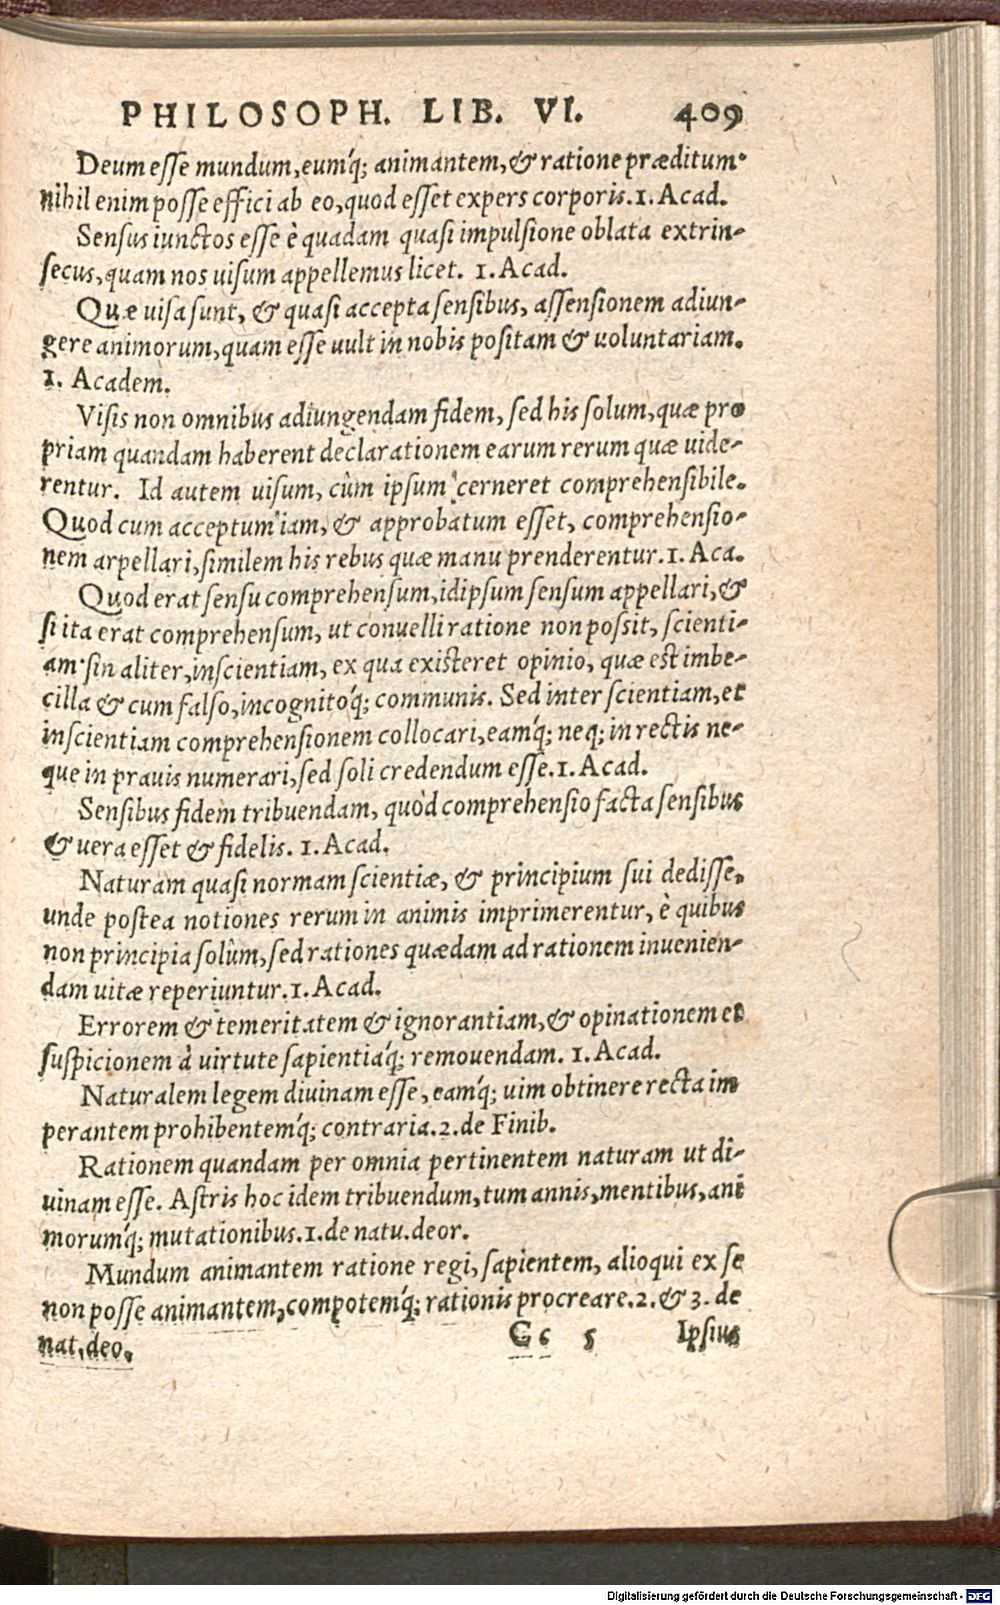 PHILOSOPH. LIB. VI. 409
Deum esse mundum, eumq́; animantem, & ratione præditum·
nihil enim posse effici ab eo, quod esset expers corporis. 1. Acad.
Sensus iunctos esse è quadam quasi impulsione oblata extrin-
secus, quam nos uisum appellemus licet. 1. Acad.
Quæ uisa sunt, & quasi accepta sensibus, assensionem adiun-
gere animorum, quam esse uult in nobis positam & uoluntariam.
1. Academ.
Visis non omnibus adiungendam fidem, sed his solum, quæ pro
priam quandam haberent declarationem earum rerum quæ uide-
rentur. Id autem uisum, cùm ipsum cerneret comprehensibile.
Quod cum acceptum iam, & approbatum esset, comprehensio-
nem arpellari, similem his rebus quæ manu prenderentur. 1. Aca.
Quod erat sensu comprehensum, idipsum sensum appellari, &
si ita erat comprehensum, ut conuelli ratione non possit, scienti-
am· sin aliter, inscientiam, ex qua existeret opinio, quæ est imbe-
cilla & cum falso, incognitoq́; communis. Sed inter scientiam, et
inscientiam comprehensionem collocari, eamq́; neq; in rectis ne-
que in prauis numerari, sed soli credendum esse. 1. Acad.
Sensibus fidem tribuendam, quòd comprehensio facta sensibus
& uera esset & fidelis. 1. Acad.
Naturam quasi normam scientiæ, & principium sui dedisse,
unde postea notiones rerum in animis imprimerentur, è quibus
non principia solùm, sed rationes quædam ad rationem inuenien-
dam uitæ reperiuntur. 1. Acad.
Errorem & temeritatem & ignorantiam, & opinationem et
suspicionem à uirtute sapientiaq́; remouendam. 1. Acad.
Naturalem legem diuinam esse, eamq́; uim obtinere recta im
perantem prohibentemq́; contraria. 2. de Finib.
Rationem quandam per omnia pertinentem naturam ut di-
uinam esse. Astris hoc idem tribuendum, tum annis, mentibus, ani
morumq́; mutationibus. 1. de natu. deor.
Mundum animantem ratione regi, sapientem, alioqui ex se
non posse animantem, compotemq́; rationis procreare. 2. & 3. de
nat. deo. Cc 5 Ipsius
Digitalisierung gefördert durch die Deutsche Forschungsgemeinschaft - DFG